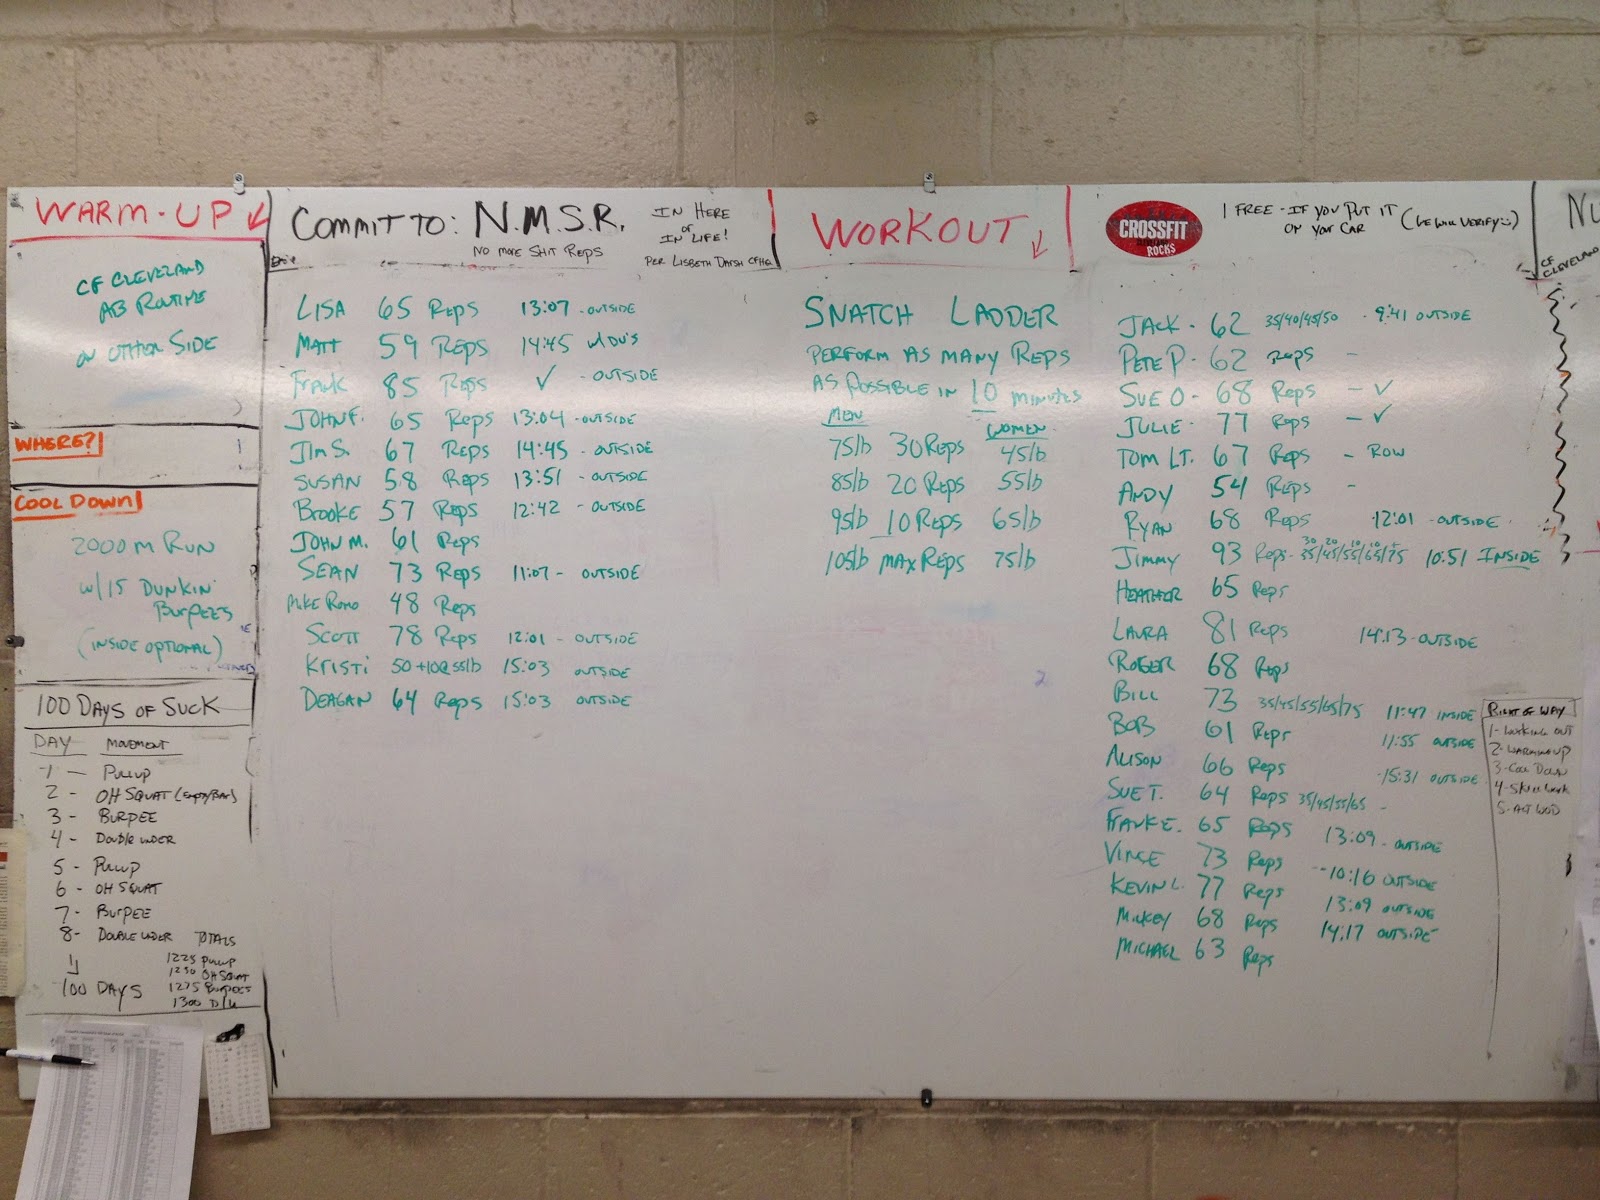 WARM-UP
CF CLEVELAND
AB ROUTINE
ON OTHER SIDE
WHERE?
COOL DOWN
2000 M RUN
W/15 DUNKIN'
BURPEES
(INSIDE OPTIONAL)
100 DAYS OF SUCK
DAY MOVEMENT
1 — PULLUP
2 - OH SQUAT (EMPTY BAR)
3 - BURPEE
4 - DOUBLE UNDER
5 - PULLUP
6 - OH SQUAT
7 - BURPEE
8 - DOUBLE UNDER
TOTALS
100 DAYS
1225 PULLUP
1250 OH SQUAT
1275 BURPEES
1300 D/U
COMMIT TO: N.M.S.R.
NO MORE SHIT REPS
IN HERE
or
IN LIFE!
PER LISBETH DARSH CFHQ
LISA 65 REPS 13:07 - OUTSIDE
MATT 59 REPS 14:45 W/DU'S
FRANK 85 REPS ✓ - OUTSIDE
JOHN F. 65 REPS 13:04 - OUTSIDE
JIM S. 67 REPS 14:45 - OUTSIDE
SUSAN 58 REPS 13:51 - OUTSIDE
BROOKE 57 REPS 12:42 - OUTSIDE
JOHN M. 61 REPS
SEAN 73 REPS 11:07 - OUTSIDE
MIKE ROMO 48 REPS
SCOTT 78 REPS 12:01 - OUTSIDE
KRISTI 50 +10@55lb 15:03 OUTSIDE
DEAGAN 64 REPS 15:03 OUTSIDE
WORKOUT
SNATCH LADDER
PERFORM AS MANY REPS
AS POSSIBLE IN 10 MINUTES
MEN WOMEN
75lb 30 REPS 45lb
85lb 20 REPS 55lb
95lb 10 REPS 65lb
105lb MAX REPS 75lb
CROSSFIT
ROCKS
1 FREE - IF YOU PUT IT
ON YOUR CAR
(WE WILL VERIFY :))
JACK - 62 35/40/45/50 - 9:41 OUTSIDE
PETE P - 62 REPS -
SUE O - 68 REPS - ✓
JULIE - 77 REPS - ✓
TOM LT. 67 REPS - ROW
ANDY 54 REPS -
RYAN 68 REPS 12:01 - OUTSIDE
30 20 10 10 +
JIMMY 93 REPS - 35/45/55/65/75 10:51 INSIDE
HEATHER 65 REPS
LAURA 81 REPS 14:13 - OUTSIDE
ROGER 68 REPS
BILL 73 35/45/55/65/75 11:47 INSIDE
BOB 61 REPS 11:55 OUTSIDE
ALISON 66 REPS - 15:31 OUTSIDE
SUE T. 64 REPS 35/45/55/65 -
FRANK E. 65 REPS 13:09 - OUTSIDE
VINCE 73 REPS - 10:16 OUTSIDE
KEVIN L. 77 REPS 13:09 OUTSIDE
MICKEY 68 REPS 14:17 OUTSIDE
MICHAEL 63 REPS
NU
CF
CLEVELAND
RIGHT OF WAY
1 - WORKING OUT
2 - WARMING UP
3 - COOL DOWN
4 - SKILL WORK
5 - ALT WOD